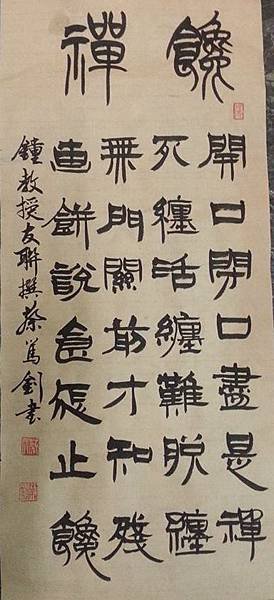 饞禪
開口閉口盡是禪
死纏活纏難脫纏
無門關前才知殘
畫餅說食怎止饞
鐘教授友聯撰蔡篤釗書